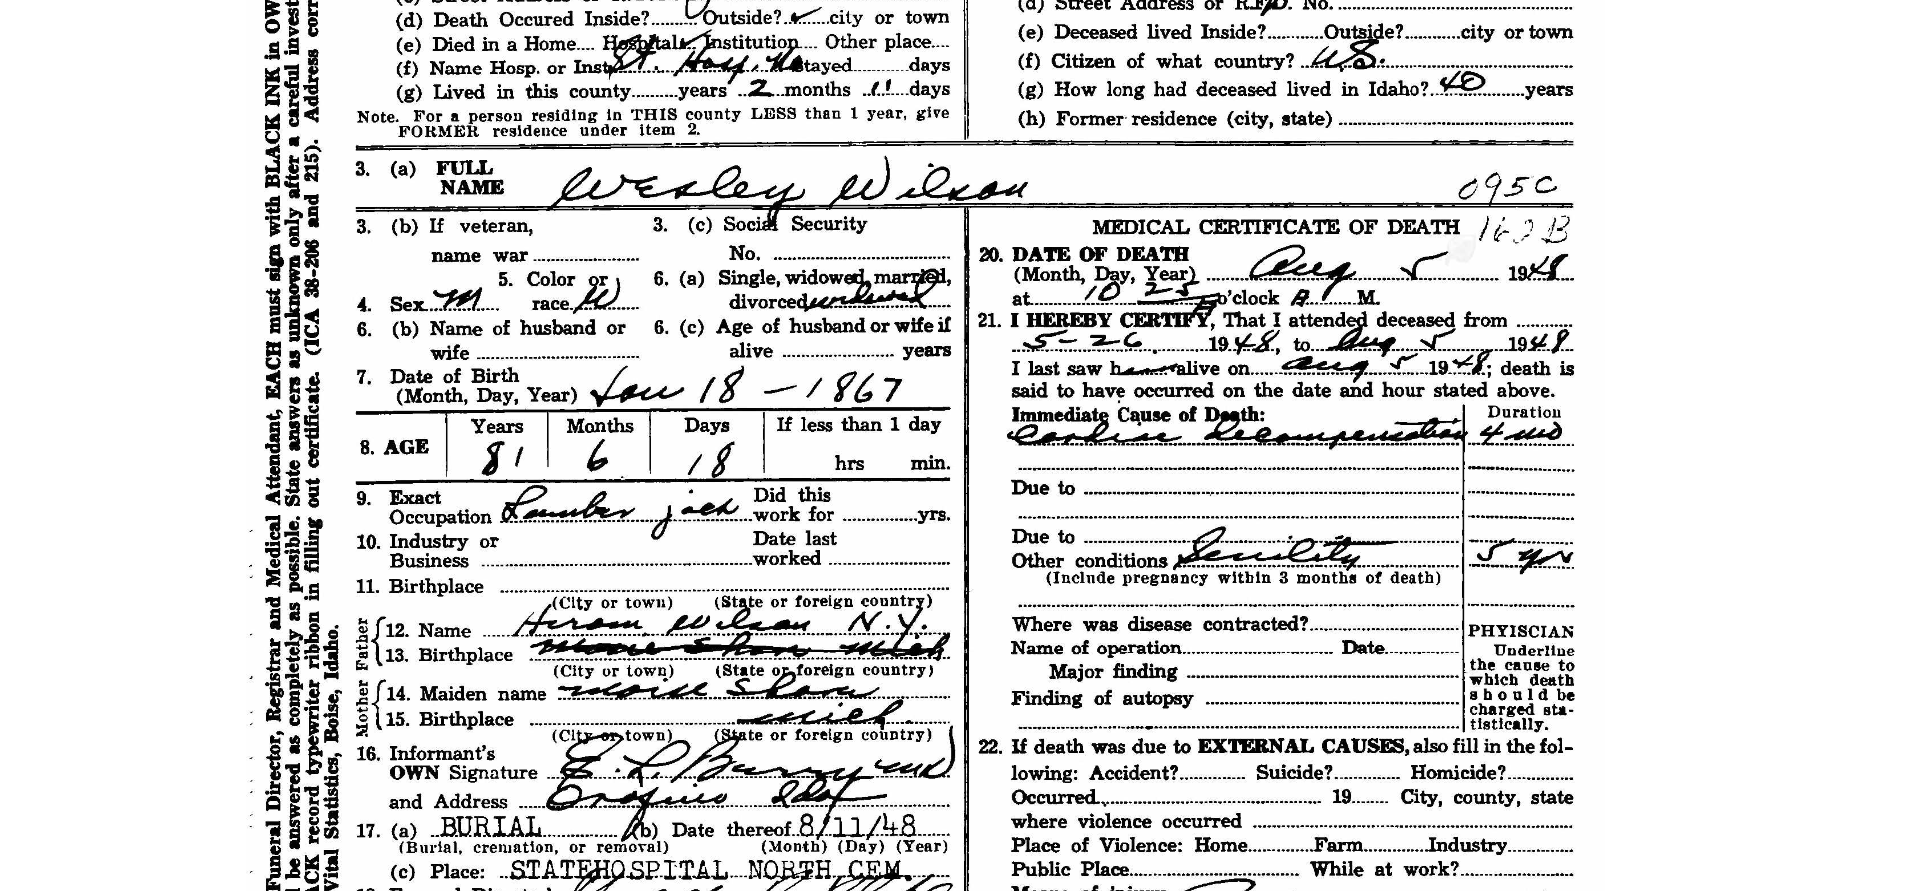 Funeral Director, Registrar and Medical Attendant, EACH must sign with BLACK INK in OW
be answered as completely as possible. State answers as unknown only after a careful invest
CK record typewriter ribbon in filling out certificate. (ICA 38-206 and 215). Address corr
Vital Statistics, Boise, Idaho.
(d) Death Occured Inside?...... Outside?..✓...city or town
(e) Died in a Home.... Hospital.. Institution.... Other place....
(f) Name Hosp. or Inst. St. Hosp. No Stayed ........days
(g) Lived in this county.........years 2 months 11 days
Note. For a person residing in THIS county LESS than 1 year, give
FORMER residence under item 2.
(d) Street Address or R.F.D. No.
(e) Deceased lived Inside?..........Outside?..........city or town
(f) Citizen of what country? U.S.
(g) How long had deceased lived in Idaho? 40 years
(h) Former residence (city, state)
3. (a) FULL NAME Wesley Wilson 095C
3. (b) If veteran,
name war
3. (c) Social Security
No.
4. Sex M
5. Color or race W
6. (a) Single, widowed, married,
divorced widowed
6. (b) Name of husband or
wife
6. (c) Age of husband or wife if
alive .................... years
7. Date of Birth
(Month, Day, Year) Jan 18 - 1867
8. AGE Years Months Days If less than 1 day
81 6 18 hrs min.
9. Exact Occupation Lumber jack Did this work for ............yrs.
10. Industry or Business Date last worked
11. Birthplace
(City or town) (State or foreign country)
Father
12. Name Hiram Wilson N.Y.
13. Birthplace
(City or town) (State or foreign country)
Mother
14. Maiden name
15. Birthplace Mich.
(City or town) (State or foreign country)
16. Informant's
OWN Signature E. L. Berry MD
and Address Orofino Ida
17. (a) BURIAL (b) Date thereof 8/11/48
(Burial, cremation, or removal) (Month) (Day) (Year)
(c) Place: STATE HOSPITAL NORTH CEM.
MEDICAL CERTIFICATE OF DEATH 162B
20. DATE OF DEATH
(Month, Day, Year) Aug 5 1948
at 10 25 o'clock A M.
21. I HEREBY CERTIFY, That I attended deceased from
5-26 1948, to Aug 5 1948
I last saw h alive on Aug 5 1948; death is
said to have occurred on the date and hour stated above.
Immediate Cause of Death: Duration
Cardiac Decompensation 4 mo
Due to
Due to
Other conditions Senility 5 yrs
(Include pregnancy within 3 months of death)
Where was disease contracted?
Name of operation Date
Major finding
Finding of autopsy
PHYISCIAN
Underline
the cause to
which death
should be
charged sta-
tistically.
22. If death was due to EXTERNAL CAUSES, also fill in the fol-
lowing: Accident?............ Suicide?............ Homicide?............
Occurred 19........ City, county, state
where violence occurred
Place of Violence: Home..........Farm..........Industry..........
Public Place.................... While at work?